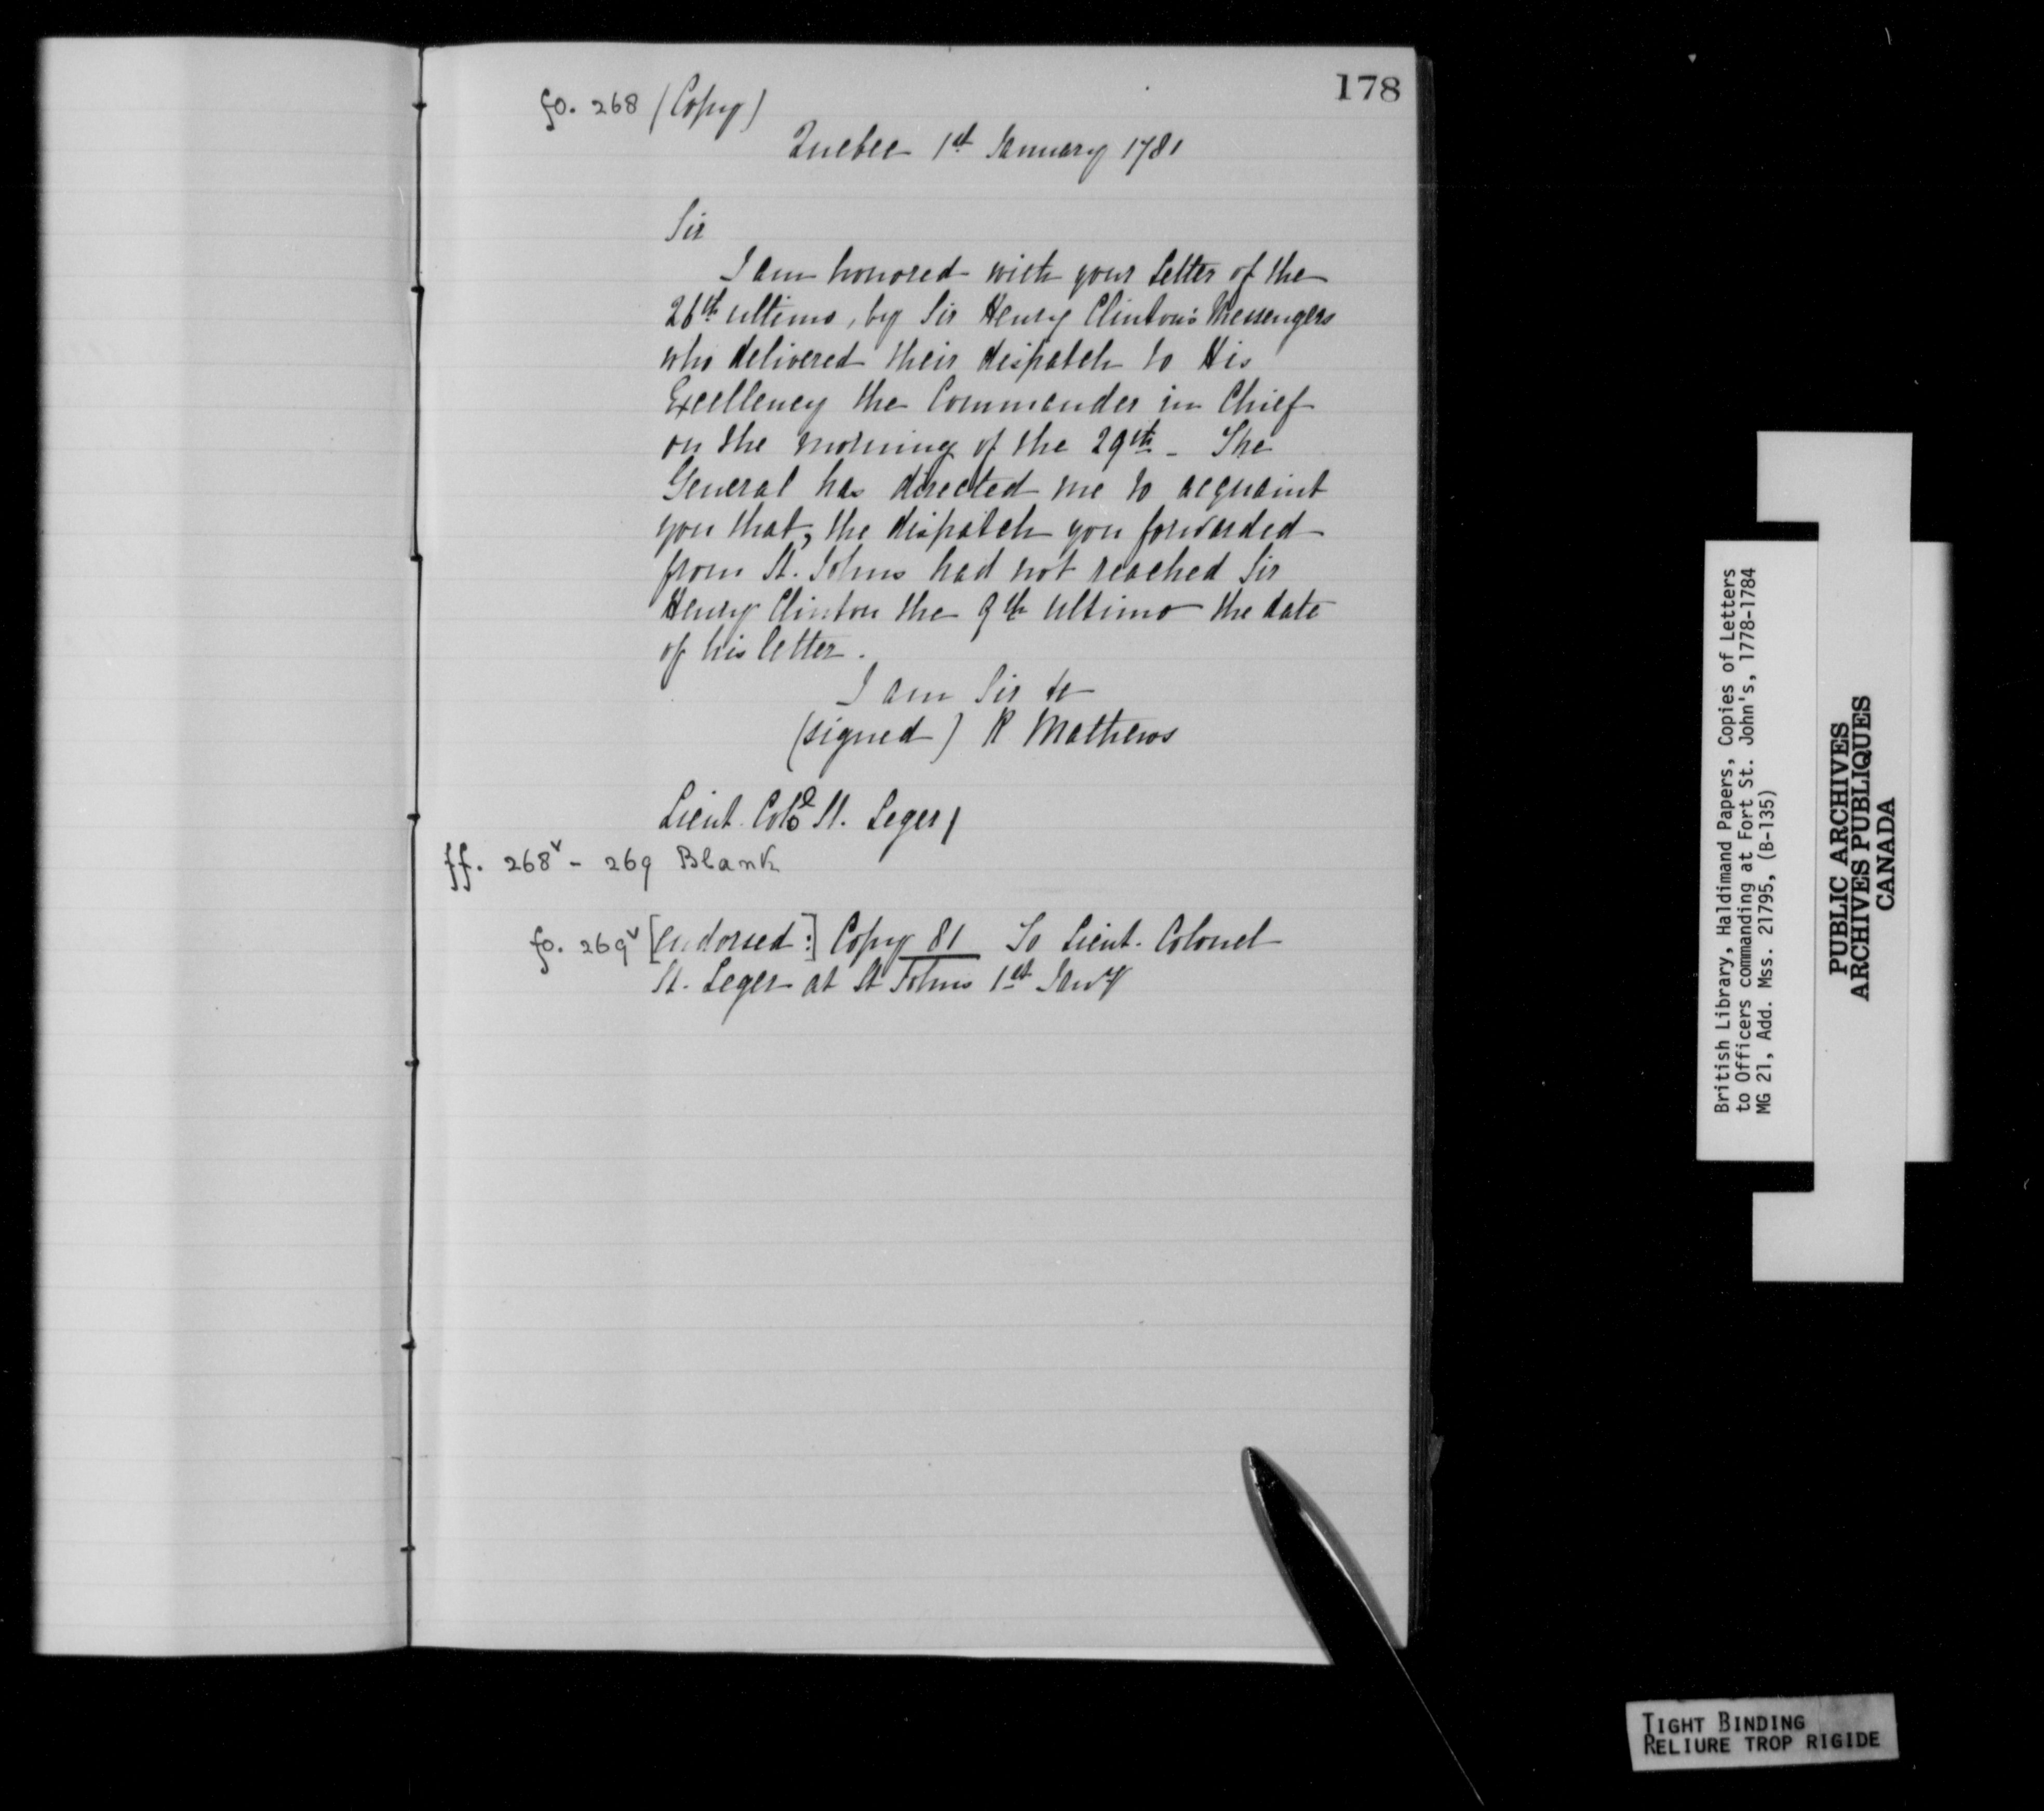 178
fo. 268 (Copy)
Quebec 1st January 1781
Sir
I am honored with your Letter of the
26th ultimo, by Sir Henry Clinton's Messengers
who delivered their dispatch to His
Excellency the Commander in Chief
on the morning of the 29th - The
General has directed me to acquaint
you that, the dispatch you forwarded
from St. Johns had not reached Sir
Henry Clinton the 9th ultimo the date
of his letter.
I am Sir &c
(signed) R Mathews
Lieut. Colo. St. Leger
ff. 268v - 269 Blank
fo. 269v [endorsed:] Copy 81 To Lieut. Colonel
St. Leger at St Johns 1st Jany
British Library, Haldimand Papers, Copies of Letters
to Officers commanding at Fort St. John's, 1778-1784
MG 21, Add. Mss. 21795, (B-135)
PUBLIC ARCHIVES
ARCHIVES PUBLIQUES
CANADA
TIGHT BINDING
RELIURE TROP RIGIDE